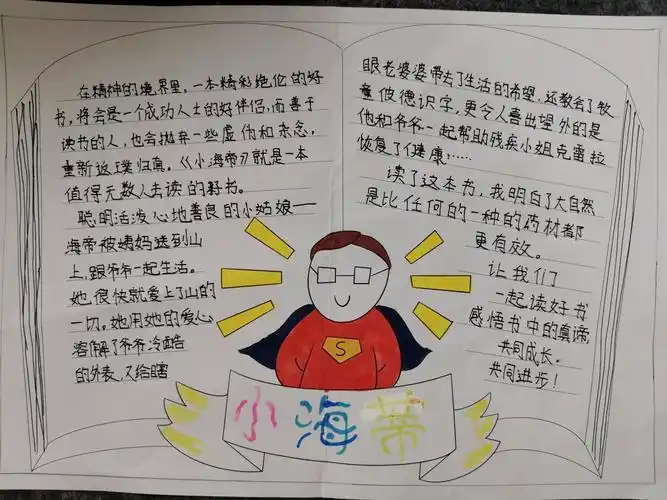 在精神的境界里,一本精彩绝伦的好
书,将会是一个成功人士的好伴侣,而善于
读书的人,也会抛弃一些虚伪和杂念,
重新返璞归真。《小海蒂》就是一本
值得无数人去读的好书。
聪明活泼心地善良的小姑娘——
海蒂被姨妈送到山
上,跟爷爷一起生活。
她很快就爱上了山的
一切。她用她的爱心
溶解了爷爷冷酷
的外表,又给瞎
眼老婆婆带去了生活的希望,还教会了牧
童彼德识字,更令人喜出望外的是
他和爷爷一起帮助残疾小姐克雷拉
恢复了健康,……
读了这本书,我明白了大自然
是比任何的一种的药材都
更有效。
让我们
一起读好书
感悟书中的真谛,
共同成长。
共同进步!
S
小海蒂